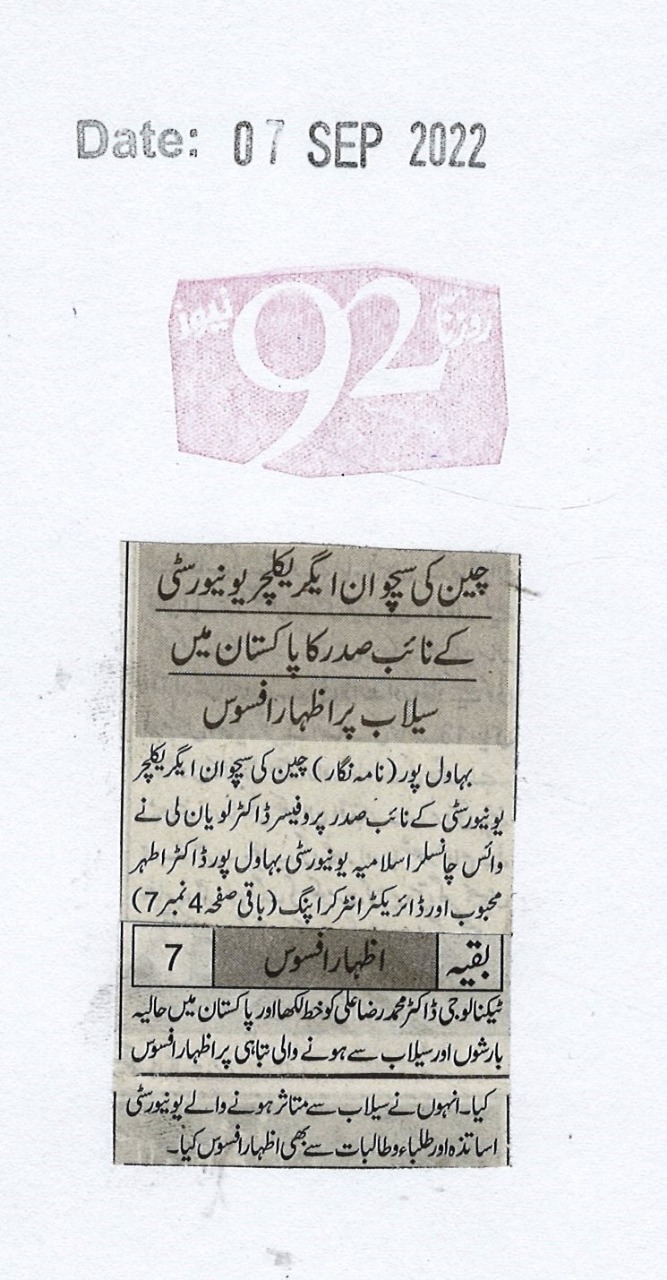 Date: 07 SEP 2022
روزنامہ 92 نیوز
چین کی سچوان ایگریکلچر یونیورسٹی
کے نائب صدر کا پاکستان میں
سیلاب پر اظہار افسوس
بہاول پور (نامہ نگار) چین کی سچوان ایگریکلچر
یونیورسٹی کے نائب صدر پروفیسر ڈاکٹر لویان لی نے
وائس چانسلر اسلامیہ یونیورسٹی بہاول پور ڈاکٹر اطہر
محبوب اور ڈائریکٹر انٹر کراپنگ (باقی صفحہ 4 نمبر 7)
بقیہ اظہار افسوس 7
ٹیکنالوجی ڈاکٹر محمد رضا علی کو خط لکھا اور پاکستان میں حالیہ
بارشوں اور سیلاب سے ہونے والی تباہی پر اظہار افسوس
کیا۔ انہوں نے سیلاب سے متاثر ہونے والے یونیورسٹی
اساتذہ اور طلباء و طالبات سے بھی اظہار افسوس کیا۔